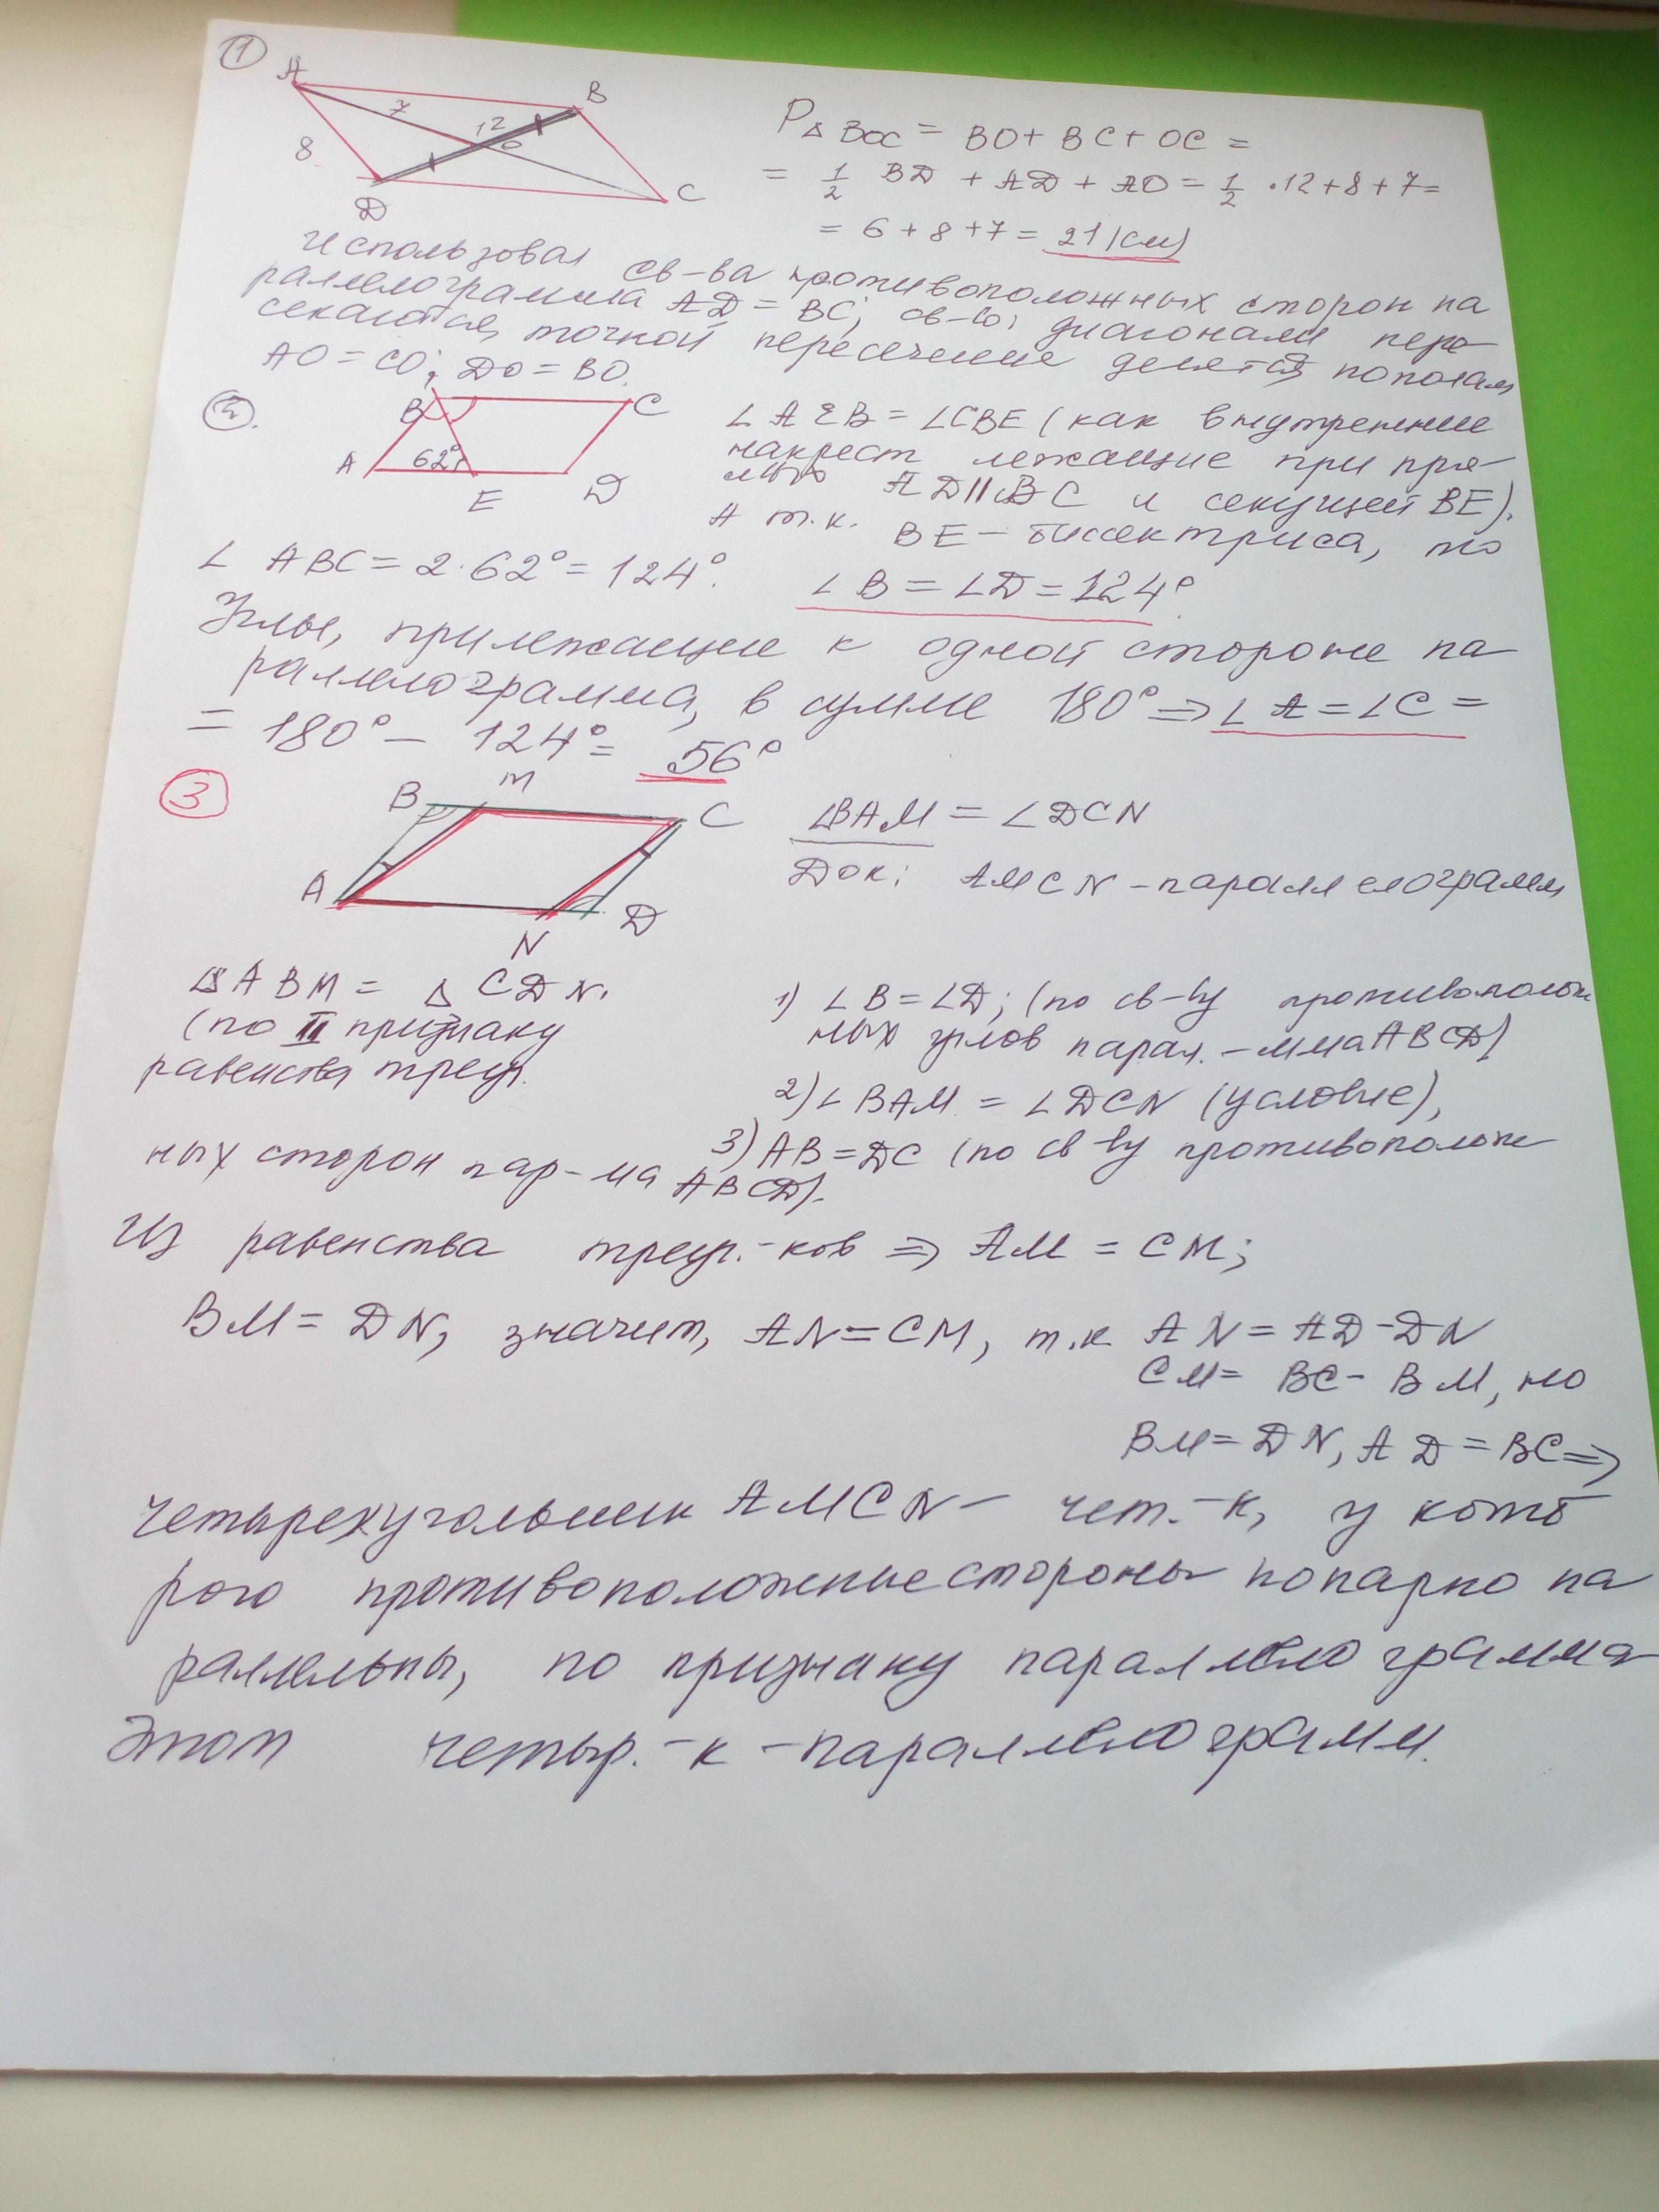 1
A
B
7
12
O
8
C
D
P△BOC = BO + BC + OC =
= 1/2 BD + AD + AO = 1/2 · 12 + 8 + 7 =
= 6 + 8 + 7 = 21 (см)
Использовал св-ва противоположных сторон па
раллелограмма AD = BC; св-во: диагонали пере-
секаются, точкой пересечения делятся пополам
AO = CO; DO = BO.
2.
B
C
A
62°
E
D
∠AEB = ∠CBE (как внутренние
накрест лежащие при пря-
мых AD || BC и секущей BE).
А т.к. BE – биссектриса, то
∠ABC = 2·62° = 124°.
∠B = ∠D = 124°.
Углы, прилежащие к одной стороне па-
раллелограмма, в сумме 180° ⇒ ∠A = ∠C =
= 180° – 124° = 56°
3
B
M
C
A
N
D
∠BAM = ∠DCN
Док: AMCN – параллелограмм
△ABM = △CDN.
(по II признаку
равенства треуг.
1) ∠B = ∠D; (по св-ву противополож
ных углов парал. – мма ABCD)
2) ∠BAM = ∠DCN (условие),
3) AB = DC (по св-ву противополож
ных сторон пар-ма ABCD).
Из равенства треуг.-ков ⇒ AM = CM;
BM = DN, значит, AN = CM, т.к AN = AD – DN
CM = BC – BM, но
BM = DN, AD = BC ⇒
четырехугольник AMCN – чет.-к, у кото
рого противоположные стороны попарно па
раллельны, по признаку параллелограмма
этот четыр.-к – параллелограмм.